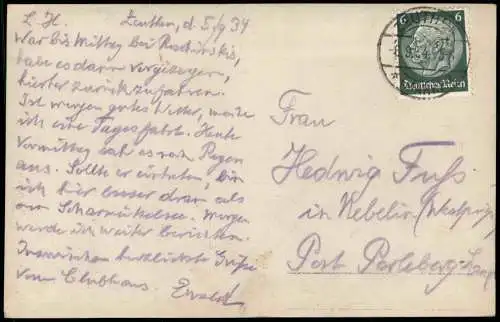 L. H. Zeuthen, d. 5/9 34
War bis Mittag bei
habe es dann vorgezogen,
hierher zurückzufahren.
Ist morgen gutes Wetter, mache
ich eine Tagesfahrt. Heute
Vormittag sah es nach Regen
aus. Sollte er eintreten, bin
ich hier besser dran als
am Scharmützelsee. Morgen
werde ich weiter berichten.
Inzwischen herzlichste Grüße
vom Clubhaus. Ewald
6 6
Deutsches Reich
Frau
Hedwig Fuss
in Kebelin (Westprig
Post Perleberg-Land